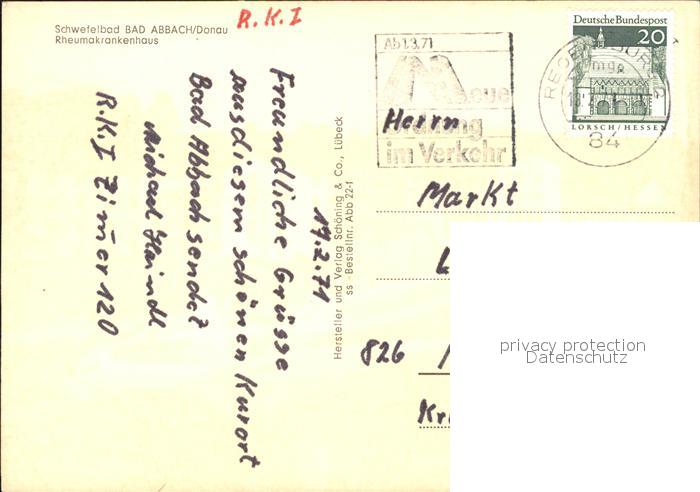 R.K.I
Schwefelbad BAD ABBACH/Donau
Rheumakrankenhaus
19.2.71
Freundliche Grüsse
aus diesem schönen Kurort
Bad Abbach sendet
Michael
R.K.I Zimer 120
Hersteller und Verlag Schöning & Co., Lübeck
ss · Bestellnr. Abb 22-f
Ab 1.3.71
Neue
im Verkehr
Deutsche Bundespost
20
LORSCH/HESSEN
84
Herrn
Markt
826
Kr
privacy protection
Datenschutz